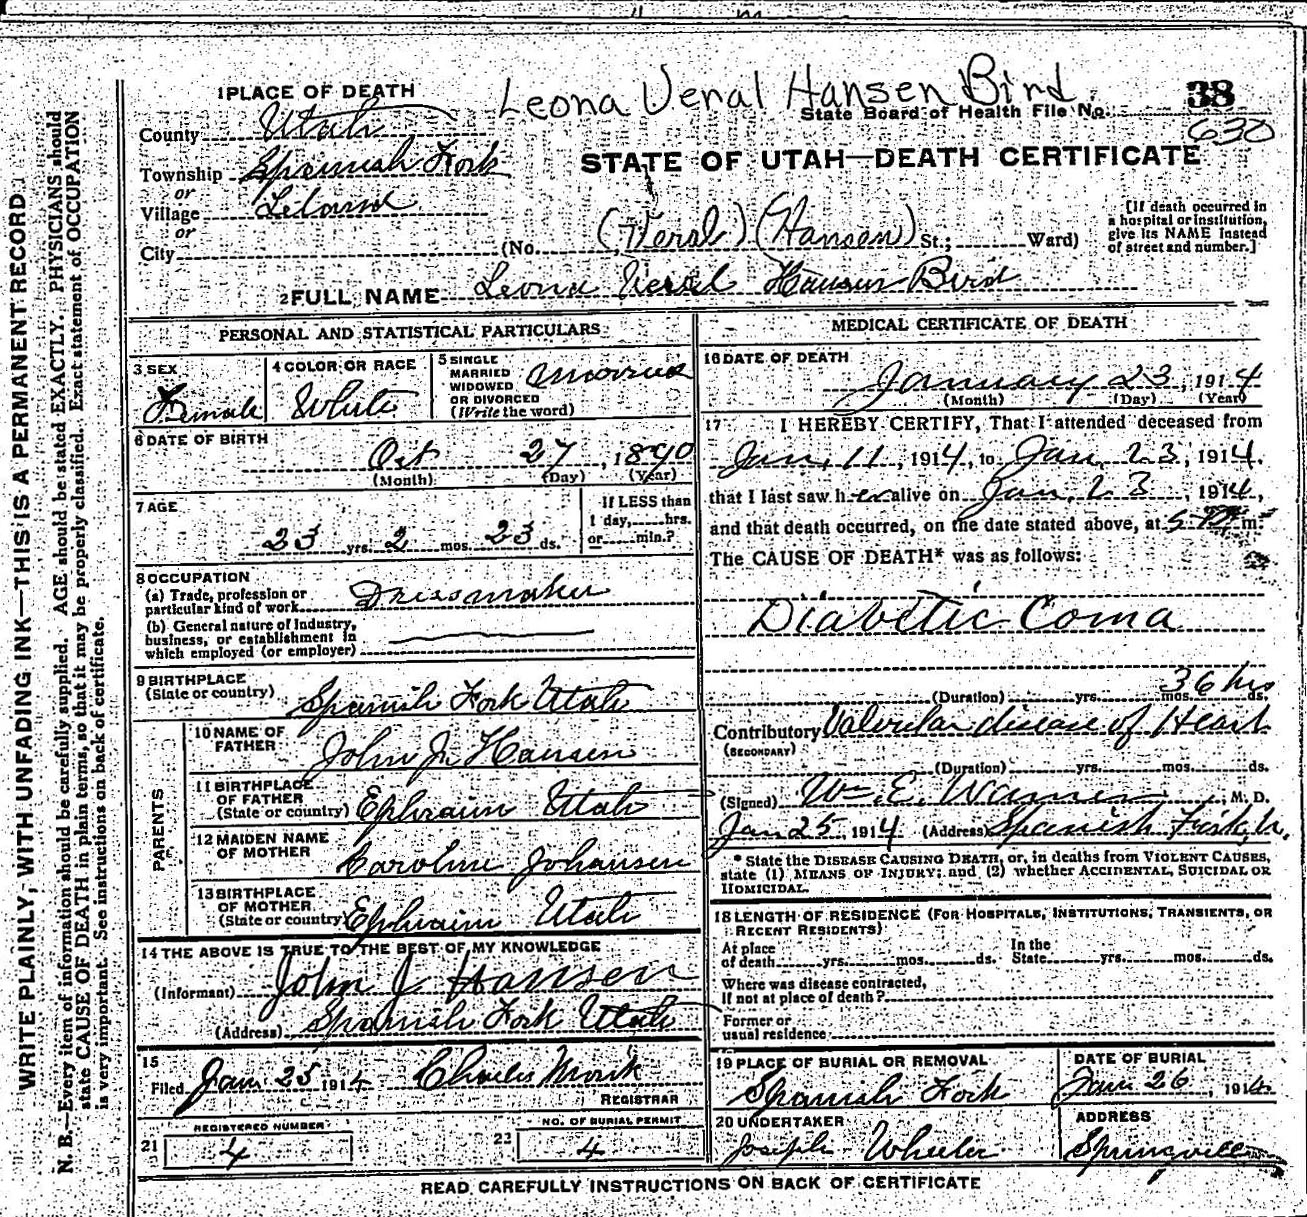 WRITE PLAINLY, WITH UNFADING INK—THIS IS A PERMANENT RECORD
N. B.—Every item of information should be carefully supplied. AGE should be stated EXACTLY. PHYSICIANS should
state CAUSE OF DEATH in plain terms, so that it may be properly classified. Exact statement of OCCUPATION
is very important. See instructions on back of certificate.
Leona Veral Hansen Bird
38
1 PLACE OF DEATH
State Board of Health File No.
630
County Utah
Township Spanish Fork
STATE OF UTAH—DEATH CERTIFICATE
or
Village Leland
or
City
(No. (Veral) (Hansen) St.; Ward)
[If death occurred in
a hospital or institution,
give its NAME instead
of street and number.]
2 FULL NAME Leona Veral Hansen Bird
PERSONAL AND STATISTICAL PARTICULARS
3 SEX
Female
4 COLOR OR RACE
White
5 SINGLE
MARRIED
WIDOWED
OR DIVORCED
(Write the word)
Married
6 DATE OF BIRTH
Oct 27, 1890
(Month) (Day) (Year)
7 AGE
23 yrs. 2 mos. 23 ds.
If LESS than
1 day, hrs.
or min.?
8 OCCUPATION
(a) Trade, profession or
particular kind of work Dressmaker
(b) General nature of Industry,
business, or establishment in
which employed (or employer)
9 BIRTHPLACE
(State or country) Spanish Fork Utah
PARENTS
10 NAME OF
FATHER John J. Hansen
11 BIRTHPLACE
OF FATHER
(State or country) Ephraim Utah
12 MAIDEN NAME
OF MOTHER Caroline Johansen
13 BIRTHPLACE
OF MOTHER
(State or country) Ephraim Utah
14 THE ABOVE IS TRUE TO THE BEST OF MY KNOWLEDGE
(Informant) John J Hansen
(Address) Spanish Fork Utah
15
Filed Jan 25 1914 Charles Monk
REGISTRAR
REGISTERED NUMBER
21 4
NO. OF BURIAL PERMIT
23 4
MEDICAL CERTIFICATE OF DEATH
16 DATE OF DEATH
January 23, 1914
(Month) (Day) (Year)
17 I HEREBY CERTIFY, That I attended deceased from
Jan, 11, 1914, to Jan, 23, 1914.
that I last saw her alive on Jan, 23, 1914,
and that death occurred, on the date stated above, at 5 m.
The CAUSE OF DEATH* was as follows:
Diabetic Coma
36 hrs
(Duration) yrs. mos. ds.
Contributory Valvular disease of Heart
(SECONDARY)
(Duration) yrs. mos. ds.
(Signed) Wm. E. Warner, M. D.
Jan 25 1914 (Address) Spanish Fork, U.
* State the DISEASE CAUSING DEATH, or, in deaths from VIOLENT CAUSES,
state (1) MEANS OF INJURY; and (2) whether ACCIDENTAL, SUICIDAL OR
HOMICIDAL.
18 LENGTH OF RESIDENCE (FOR HOSPITALS, INSTITUTIONS, TRANSIENTS, OR
RECENT RESIDENTS)
At place
of death yrs. mos. ds.
In the
State yrs. mos. ds.
Where was disease contracted,
If not at place of death?
Former or
usual residence
19 PLACE OF BURIAL OR REMOVAL
Spanish Fork
DATE OF BURIAL
Jan 26, 1914
20 UNDERTAKER
Joseph Wheeler
ADDRESS
Springville
READ CAREFULLY INSTRUCTIONS ON BACK OF CERTIFICATE